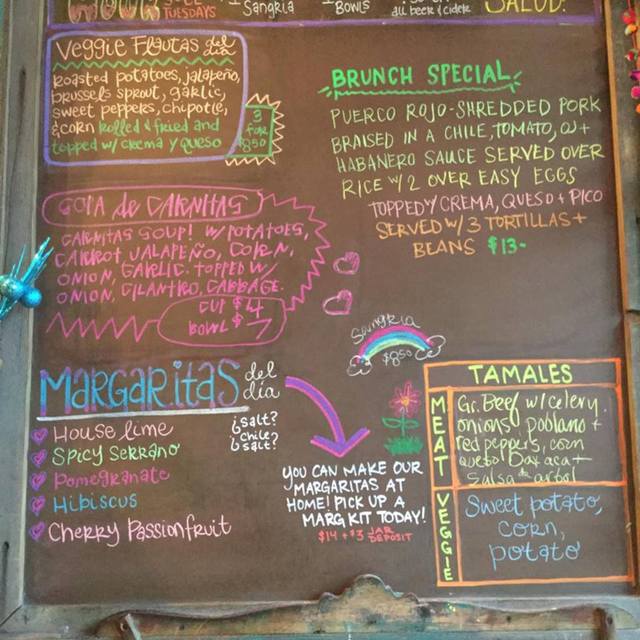 TUESDAYS
Sangria
BOWLS
all beer & cider
SALUD!
Veggie Flautas del día
Roasted potatoes, jalapeño,
brussels sprout, garlic,
sweet peppers, chipotle,
& corn rolled & fried and
topped w/ crema y queso
3
FOR
$850
BRUNCH SPECIAL
PUERCO ROJO-SHREDDED PORK
BRAISED IN A CHILE, TOMATO, OJ +
HABANERO SAUCE SERVED OVER
RICE w/ 2 OVER EASY EGGS
TOPPED w/ CREMA, QUESO + PICO
SERVED w/ 3 TORTILLAS +
BEANS $13-
SOPA de CARNITAS
CARNITAS SOUP! W/ POTATOES,
CARROT JALAPEÑO, CORN,
ONION, GARLIC. TOPPED W/
ONION, CILANTRO, CABBAGE.
CUP $4
BOWL $7
Sangria
$850
MARGARITAS del día
House lime
Spicy Serrano
Pomegranate
Hibiscus
Cherry Passionfruit
¿salt?
¿chile salt?
YOU CAN MAKE OUR
MARGARITAS AT
HOME! PICK UP A
MARG KIT TODAY!
$14 + $3 JAR DEPOSIT
TAMALES
MEAT
Gr. Beef w/ celery
onions poblano +
red peppers, corn
queso Oaxaca +
Salsa de arbol
VEGGIE
Sweet potato,
corn,
potato